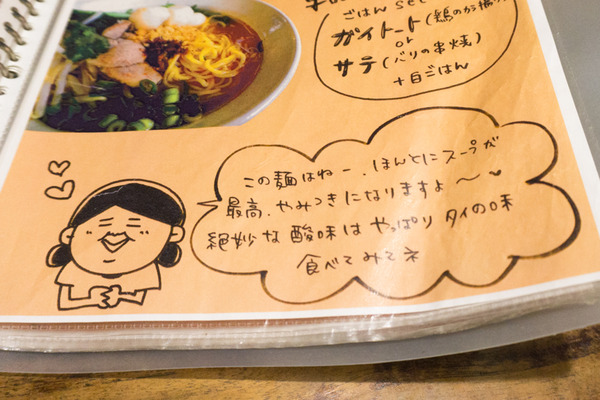 ごはん set
ガイトート(鶏のから揚げ)
or
サテ(バリの串焼)
+白ごはん
この麺はねー、ほんとにスープが
最高、やみつきになりますよ〜♥
絶妙な酸味はやっぱりタイの味
食べてみてネ